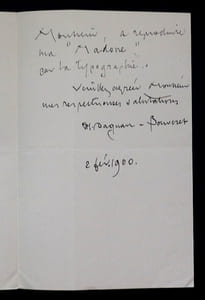 Monsieur, à reproduire
ma "Madone"
par la typographie..
Veuillez agréer Monsieur
mes respectueuses salutations
Dagnan-Bouveret
2 fév. 1900.